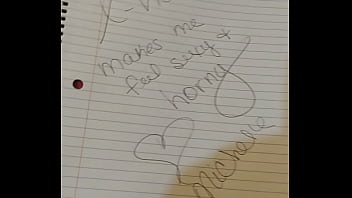 makes me
feel sexy &
horny
Michelle